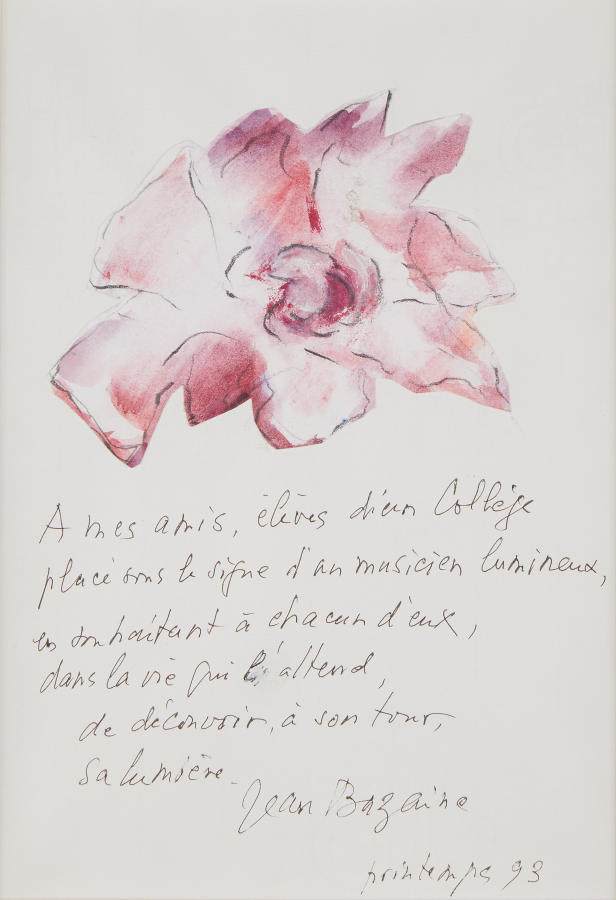 A mes amis, élèves d'un Collège
placé sous le signe d'un musicien lumineux,
en souhaitant à chacun d'eux,
dans la vie qui l'attend,
de découvrir, à son tour,
sa lumière.
Jean Bazaine
printemps 93